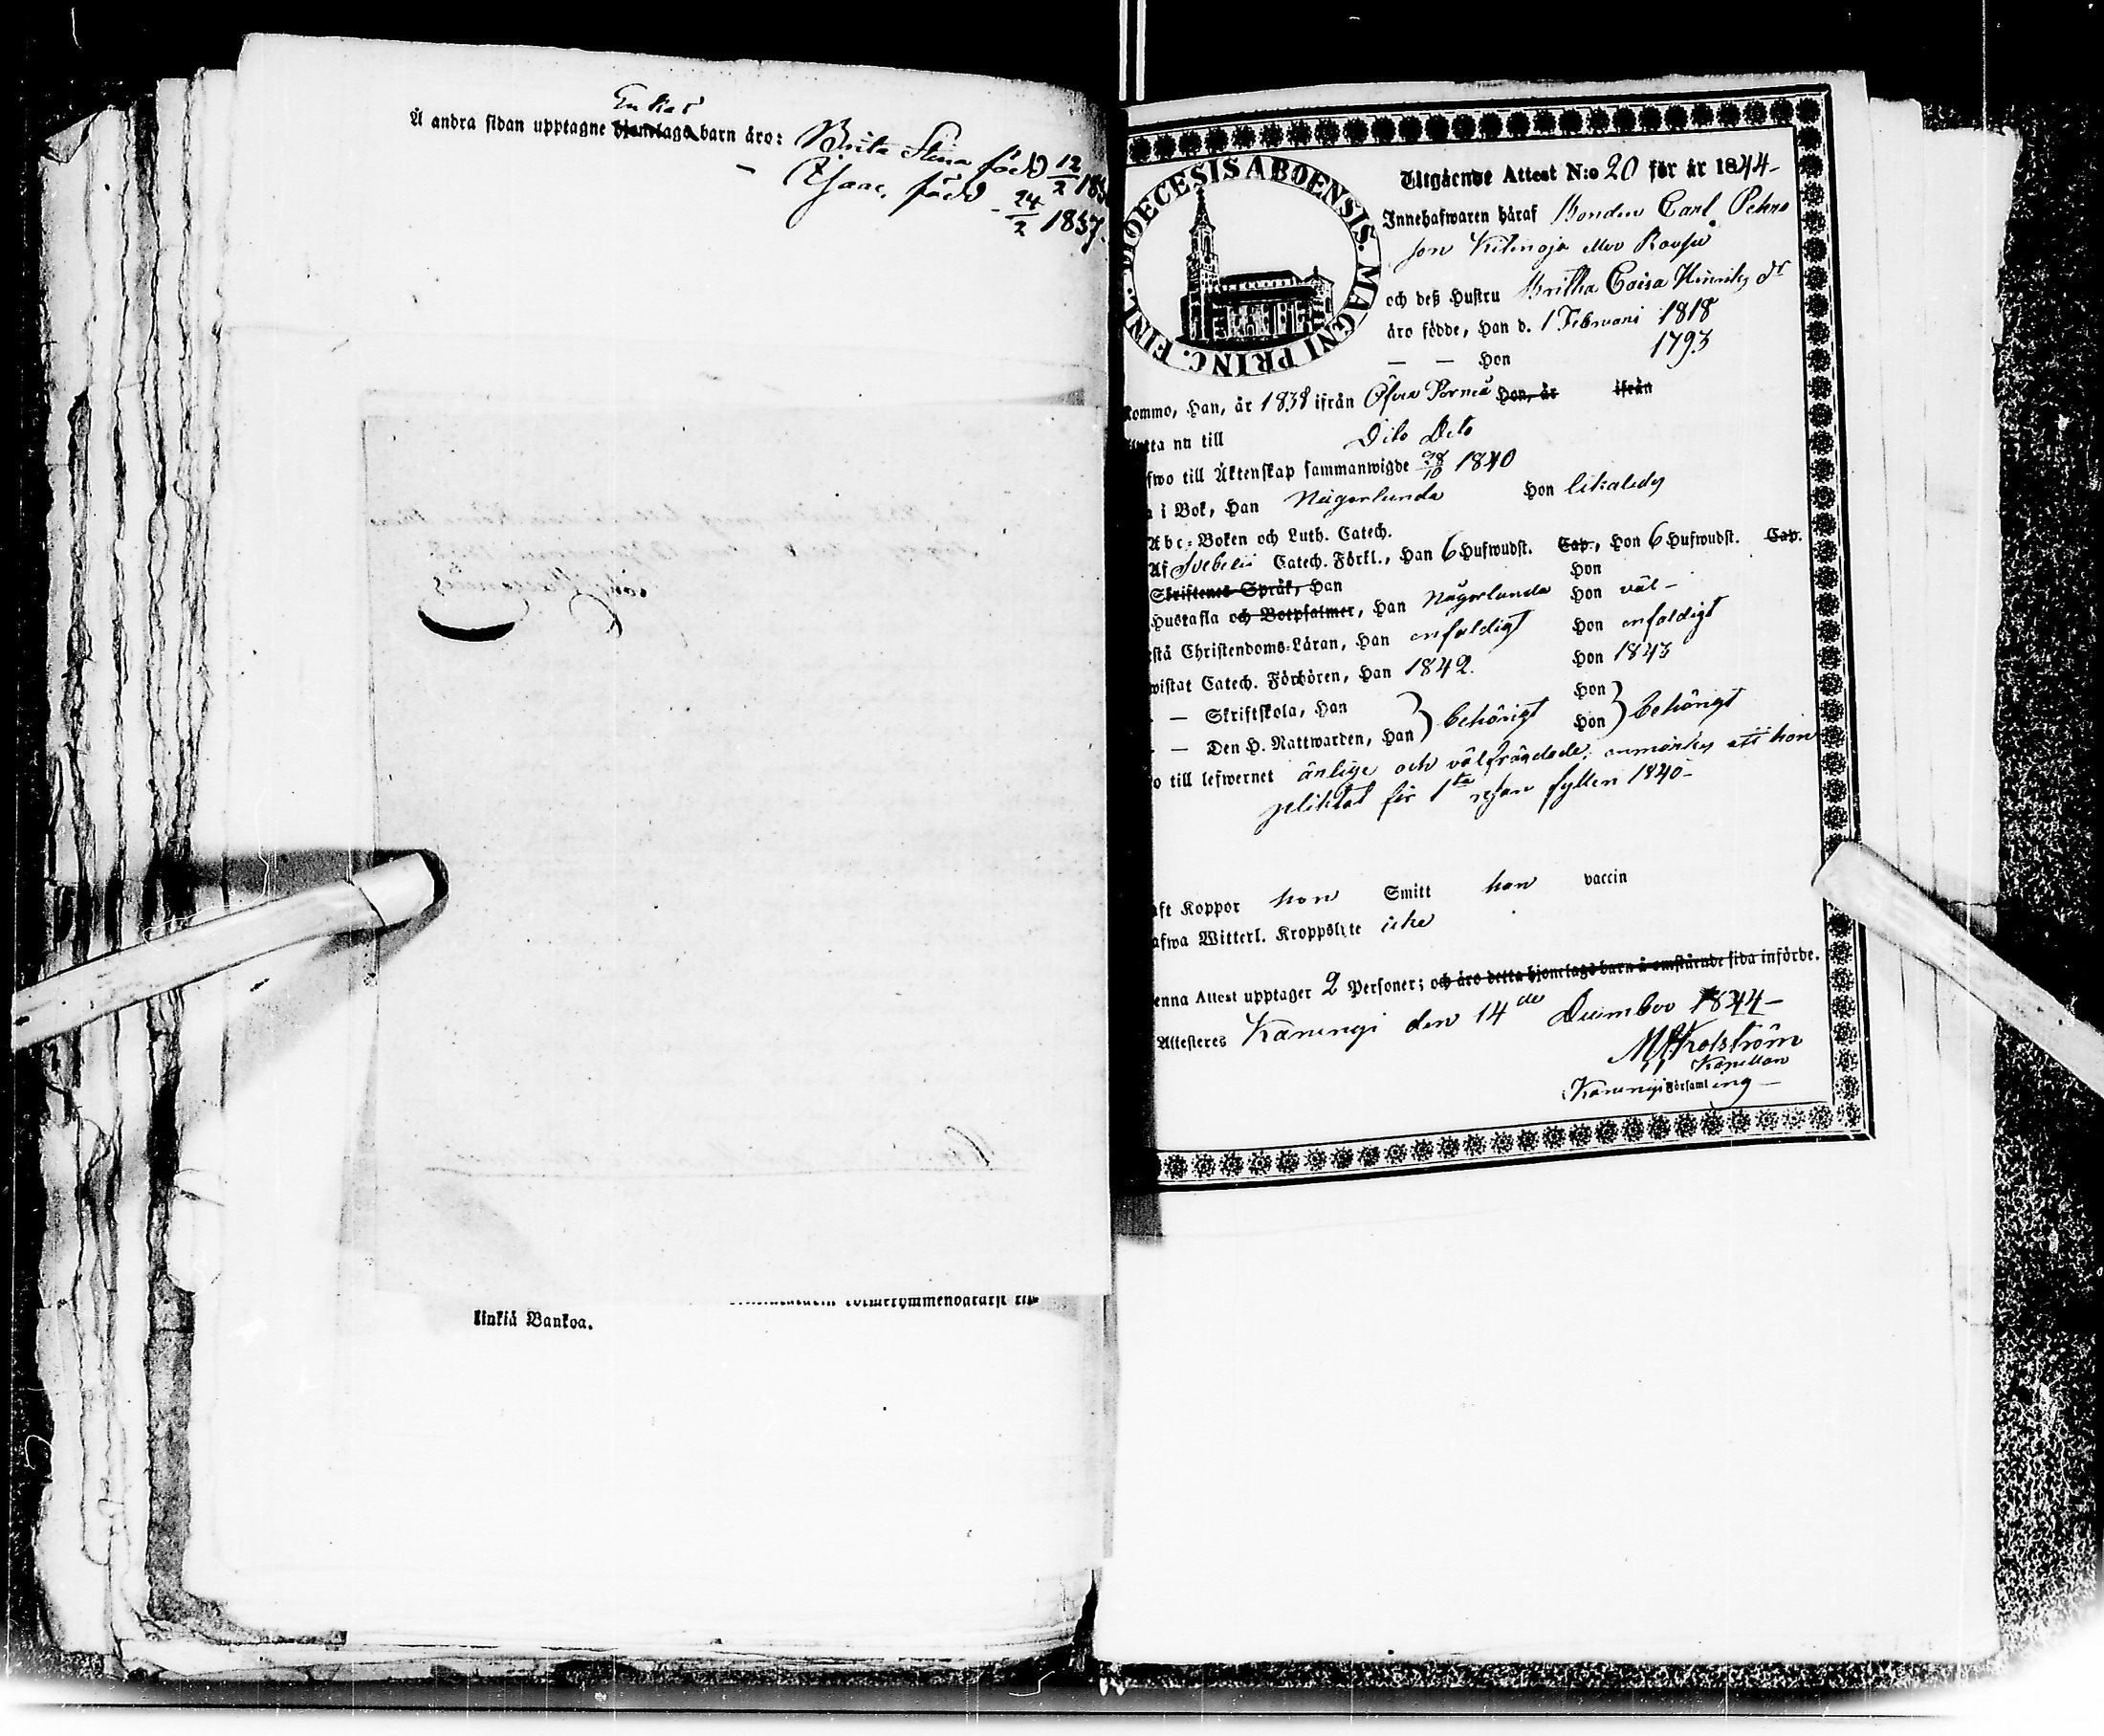 Enkas
Å andra sidan upptagne hjonelags barn äro: Brita Stena född 12/2 183
— Isaac, född - 24/2 1837.
kinkiä Pankoa.
DIOECESIS ABOENSIS. MAGNI PRINC. FINL.
Utgående Attest N:o 20 för år 1844-
Innehafwaren häraf Bonden Carl Pehrs
son Kitinoja eller
och deß Hustru Britha Caisa Hinriks dr
äro födde, Han d. 1 Februari 1818
— — Hon 1793
kommo, Han, år 1838 ifrån Öfver Torneå Hon, år ifrån
flytta nu till Dito Dito
fwo till Äktenskap sammanwigde 28/10 1840
i Bok, Han Någorlunda Hon likaledes
Abc-Boken och Luth. Catech.
Af Svebelii Catech. Förkl., Han 6 Hufwudst. Cap., Hon 6 Hufwudst. Cap.
Skriftenes Språk, Han Hon
Hustafla och Botpsalmer, Han Någorlunda Hon väl -
stå Christendoms-Läran, Han enfaldigt Hon enfaldigt
wistat Catech. Förhören, Han 1842. Hon 1843
— Skriftskola, Han Hon
— Den H. Nattwarden, Han } behörigt Hon } behörigt
o till lefwernet änlige och välfrägdade; anmärkes att hon
pliktat för 1sta resan fylleri 1840-
aft Koppor hon Smitt han vaccin
afwa Witterl. Kroppslyte icke
enna Attest upptager 2 Personer; och äro detta hjonelags barn å omstående sida införde.
Attesteres Karungi den 14de December 1844-
Kapellan
Karungi Församling —